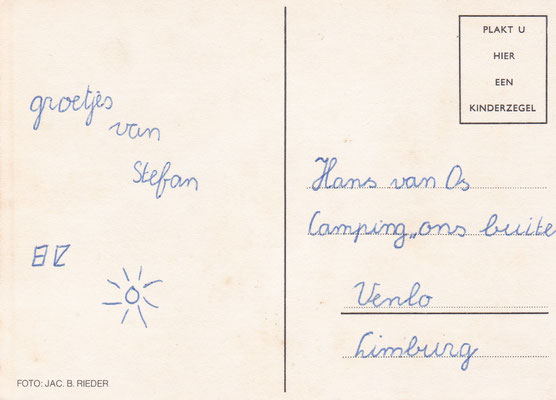 groetjes
van
Stefan
FOTO: JAC. B. RIEDER
PLAKT U
HIER
EEN
KINDERZEGEL
Hans van Os
Camping „ons buite
Venlo
Limburg